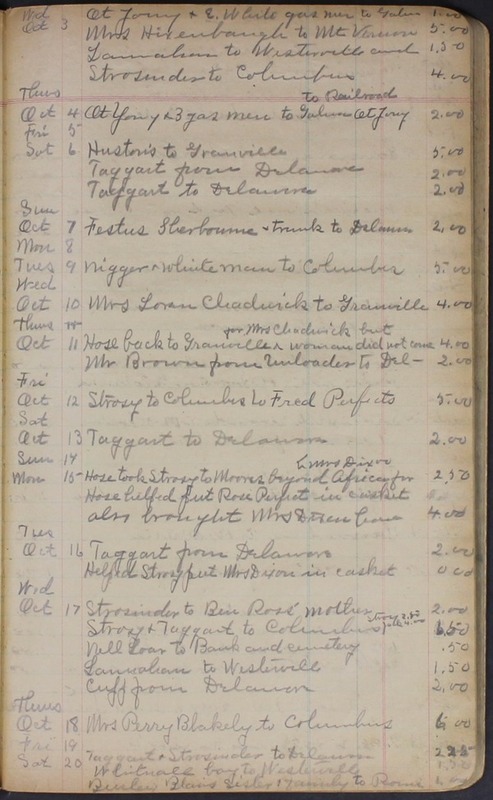 Wed Ot Jony & E. White gas men to Galena 1.00
Oct 3 Mrs Hivenbaugh to Mt Vernon 5.00
Lannahan to Westerville and 1.50
Strosinder to Columbus 4.00
Thurs to Railroad
Oct 4 Ot Yony & 3 gas men to Galena Ot Jony 2.00
Fri 5
Sat 6 Huston's to Granville 5.00
Taggart from Delaware 2.00
Taggart to Delaware 2.00
Sun
Oct 7 Festus Sherbourne & trunk to Delawa 2.00
Mon 8
Tues 9 nigger & white man to Columbus 5.00
Wed
Oct 10 Mrs Loran Chadwick to Granville 4.00
Thurs 11 for Mrs Chadwick but
Oct 11 Hose back to Granville woman did not come 4.00
Mr Brown from Unloader to Del- 2.00
Fri
Oct 12 Strosy to Columbus to Fred Perfects 5.00
Sat
Oct 13 Taggart to Delaware 2.00
Sun 14 to Mrs Dixon
Mon 15 Hose took Strosy to Moores beyond Africa for 2.50
Hose helped put Rose Perfect in casket
also brought Mrs Dixon 4.00
Tues
Oct 16 Taggart from Delaware 2.00
Helped Strosy put Mrs Dixon in casket 0 00
Wed
Oct 17 Strosinder to Ben Ross' mother 2.00
Strosy & Taggart to Columbus 6.50
Nell Loar to Bank and cemetery .50
Lannahan to Westerville 1.50
Cuff from Delaware 2.00
Thurs
Oct 18 Mrs Perry Blakely to Columbus 6.00
Fri 19
Sat 20 Taggart & Strosinder to Delaware
Whitnall boy to Westerville 1.50
Blains Sister & Family to